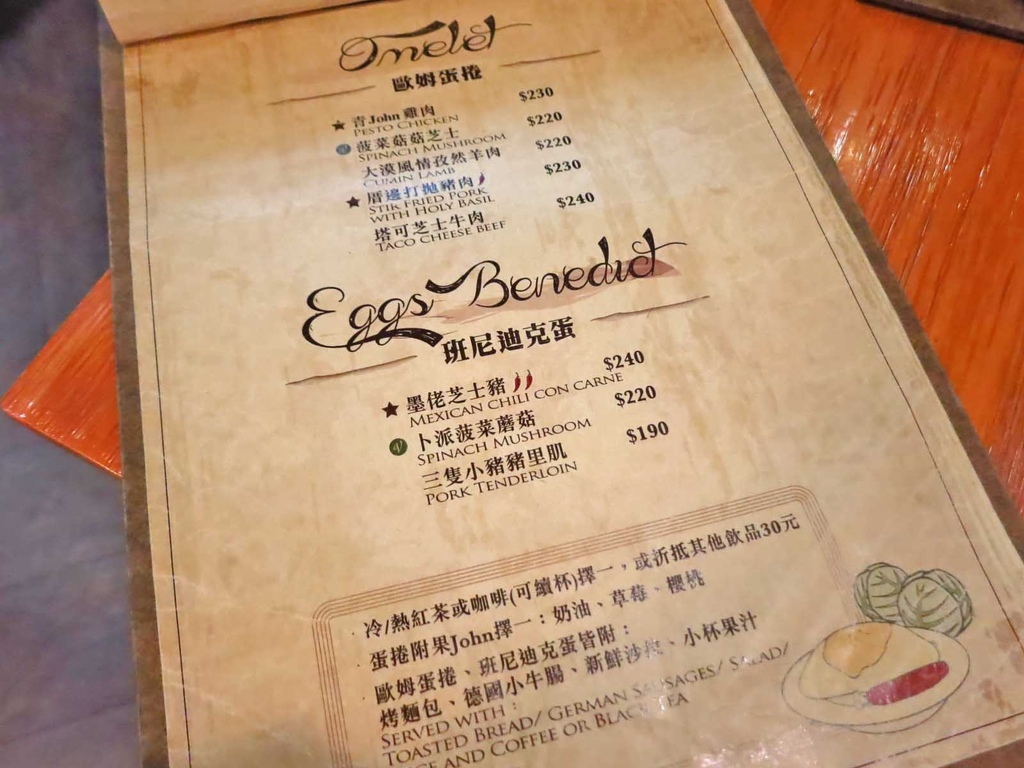 Omelet
歐姆蛋捲
青John雞肉 $230
PESTO CHICKEN
菠菜菇菇芝士 $220
SPINACH MUSHROOM
大漠風情孜然羊肉 $220
CUMIN LAMB
厝邊打拋豬肉 $230
STIR FRIED PORK
WITH HOLY BASIL
塔可芝士牛肉 $240
TACO CHEESE BEEF
Eggs Benedict
班尼迪克蛋
墨佬芝士豬 $240
MEXICAN CHILI CON CARNE
卜派菠菜蘑菇 $220
SPINACH MUSHROOM
三隻小豬豬里肌 $190
PORK TENDERLOIN
冷/熱紅茶或咖啡(可續杯)擇一，或折抵其他飲品30元
蛋捲附果John擇一：奶油、草莓、櫻桃
歐姆蛋捲、班尼迪克蛋皆附：
烤麵包、德國小牛腸、新鮮沙拉、小杯果汁
SERVED WITH :
TOASTED BREAD/ GERMAN SAUSAGES/ SALAD/
AND COFFEE OR BLACK TEA